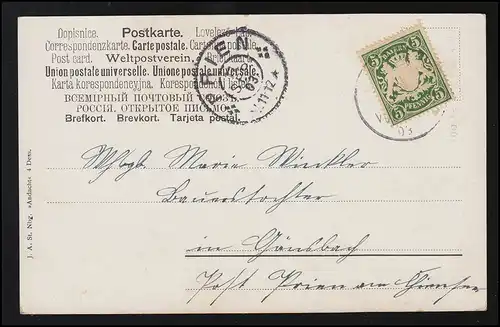 Dopisnice. Postkarte. Levelező-lap.
Correspondenzkarte. Carte postale. Cartolina postale.
Post card. Weltpostverein.
Union postale universelle. Unione postale universale.
Karta korespondencyjna. Korespondenční lístek.
ВСЕМІРНЫЙ ПОЧТОВЫЙ СОЮЗЪ.
РОССІЯ. ОТКРЫТОЕ ПИСЬМО.
Brefkort. Brevkort. Tarjeta postal.
PRIEN
03
11-12
BAYERN
5 5
PFENNIG
5 5
03
Marie Winkler
Bauerstochter
in Gänsbach
Post Prien am Chiemsee
J. A. St. Nbg. »Andacht« 4 Dess.